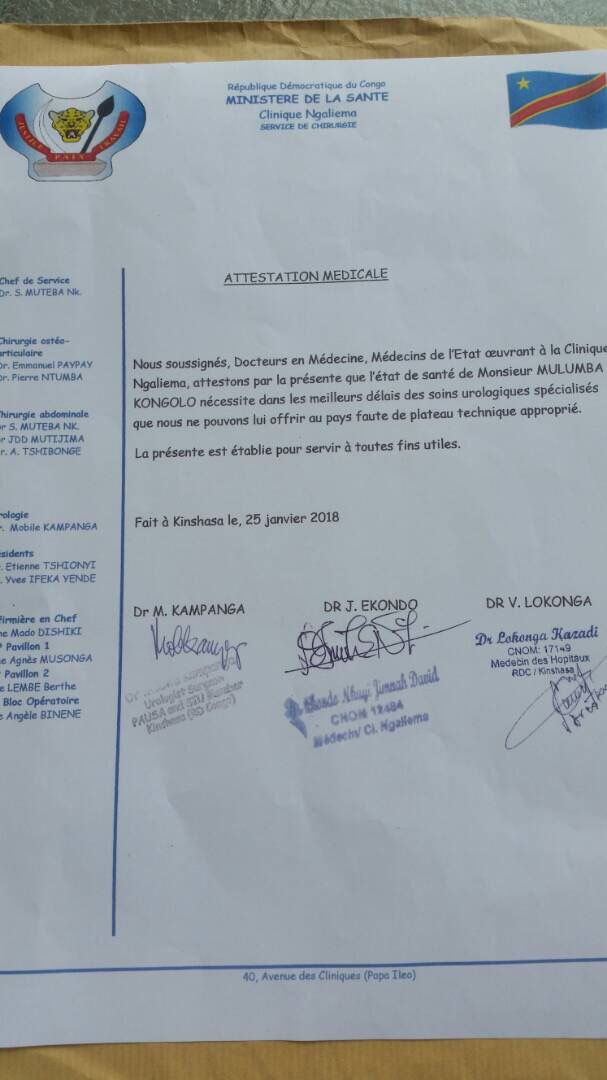 République Démocratique du Congo
MINISTERE DE LA SANTE
Clinique Ngaliema
SERVICE DE CHIRURGIE
JUSTICE PAIX TRAVAIL
ATTESTATION MEDICALE
Chef de Service
Dr. S. MUTEBA Nk.
Chirurgie ostéo-
articulaire
Dr. Emmanuel PAYPAY
Dr. Pierre NTUMBA
Chirurgie abdominale
Dr S. MUTEBA NK.
Dr JDD MUTIJIMA
Dr. A. TSHIBONGE
rologie
r. Mobile KAMPANGA
sidents
. Etienne TSHIONYI
. Yves IFEKA YENDE
firmière en Chef
me Mado DISHIKI
Pavillon 1
e Agnès MUSONGA
Pavillon 2
e LEMBE Berthe
Bloc Opératoire
e Angèle BINENE
Nous soussignés, Docteurs en Médecine, Médecins de l'Etat œuvrant à la Clinique
Ngaliema, attestons par la présente que l'état de santé de Monsieur MULUMBA
KONGOLO nécessite dans les meilleurs délais des soins urologiques spécialisés
que nous ne pouvons lui offrir au pays faute de plateau technique approprié.
La présente est établie pour servir à toutes fins utiles.
Fait à Kinshasa le, 25 janvier 2018
Dr M. KAMPANGA
DR J. EKONDO
DR V. LOKONGA
Urologist Surgeon
PAUSA and SIU Member
Kinshasa (RD Congo)
CNOM 12484
Médecin/ Cl. Ngaliema
Dr Lokonga Kazadi
CNOM: 17149
Médecin des Hopitaux
RDC / Kinshasa
40, Avenue des Cliniques (Papa Ileo)